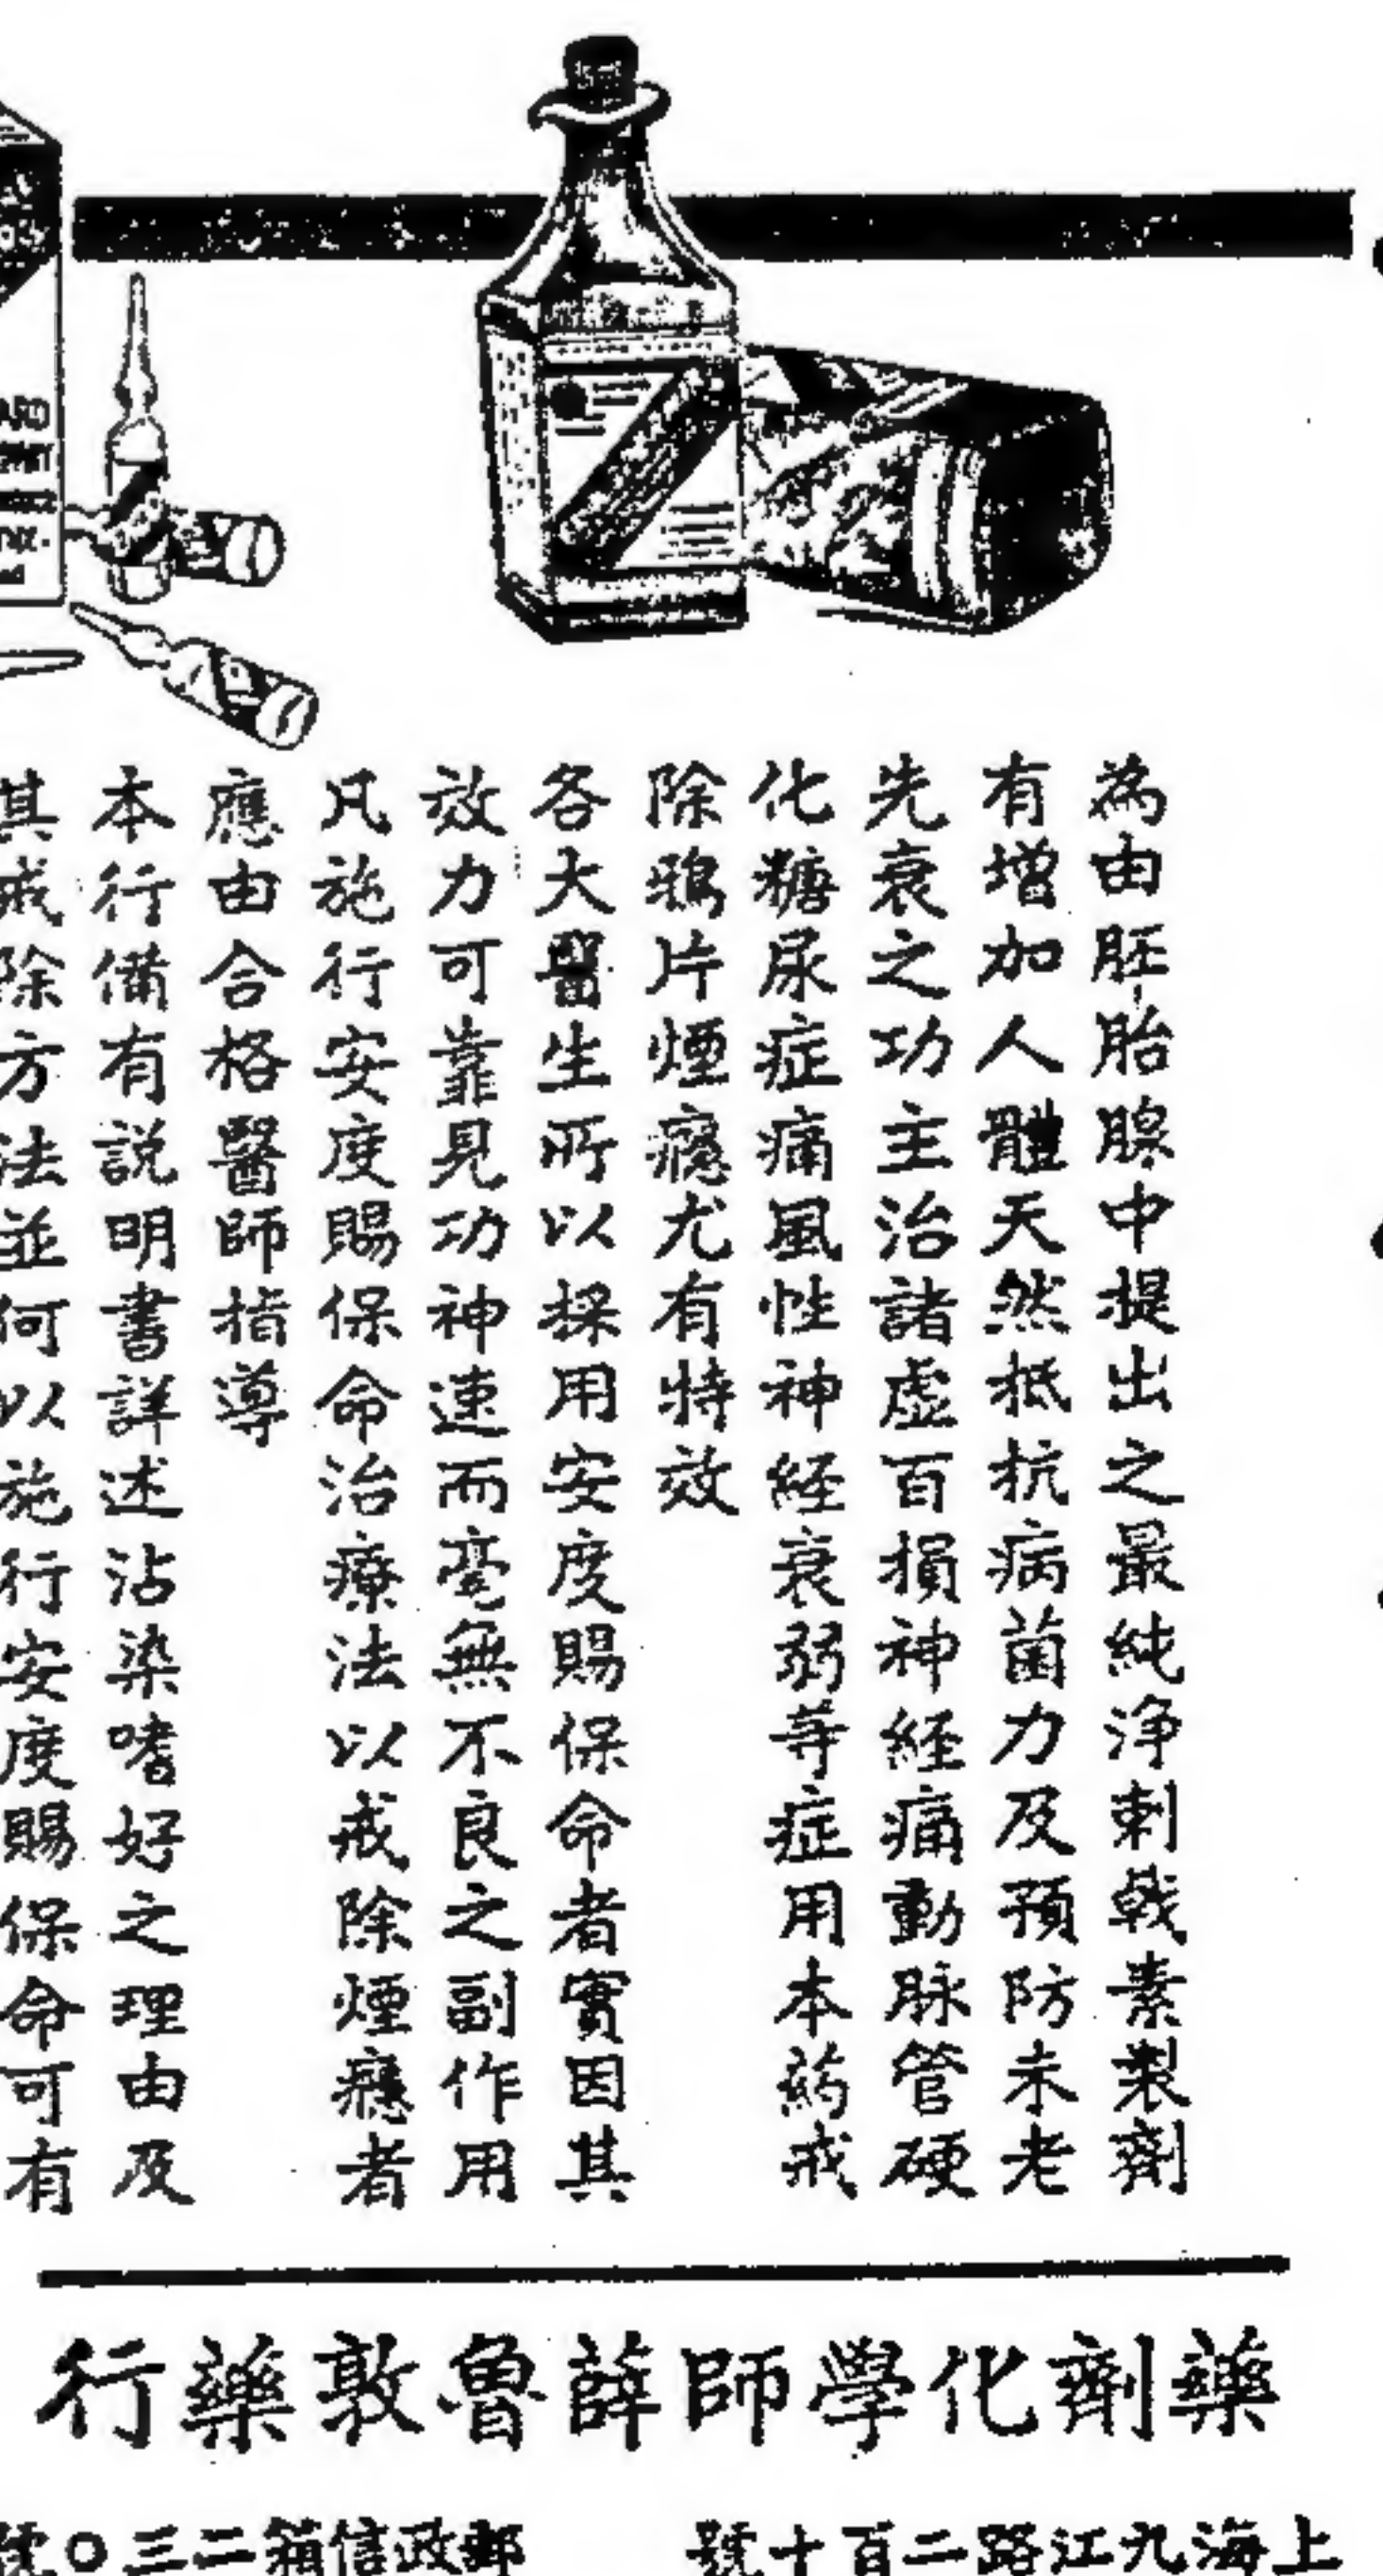 為由胚胎腺中提出之最純淨刺戟素製劑
有增加人體天然抵抗病菌力及預防未老
先衰之功主治諸虛百損神經痛動脉管硬
化糖尿症痛風性神經衰弱等症用本葯戒
除鴉片煙癮尤有特效
各大醫生所以採用安度賜保命者實因其
效力可靠見功神速而毫無不良之副作用
凡施行安度賜保命治療法以戒除煙癮者
應由合格醫師指導
本行備有説明書詳述沾染嗜好之理由及
其戒除方法並何以施行安度賜保命可有
藥劑化學師薛魯敦藥行
上海九江路二百十號
郵政信箱二三〇號